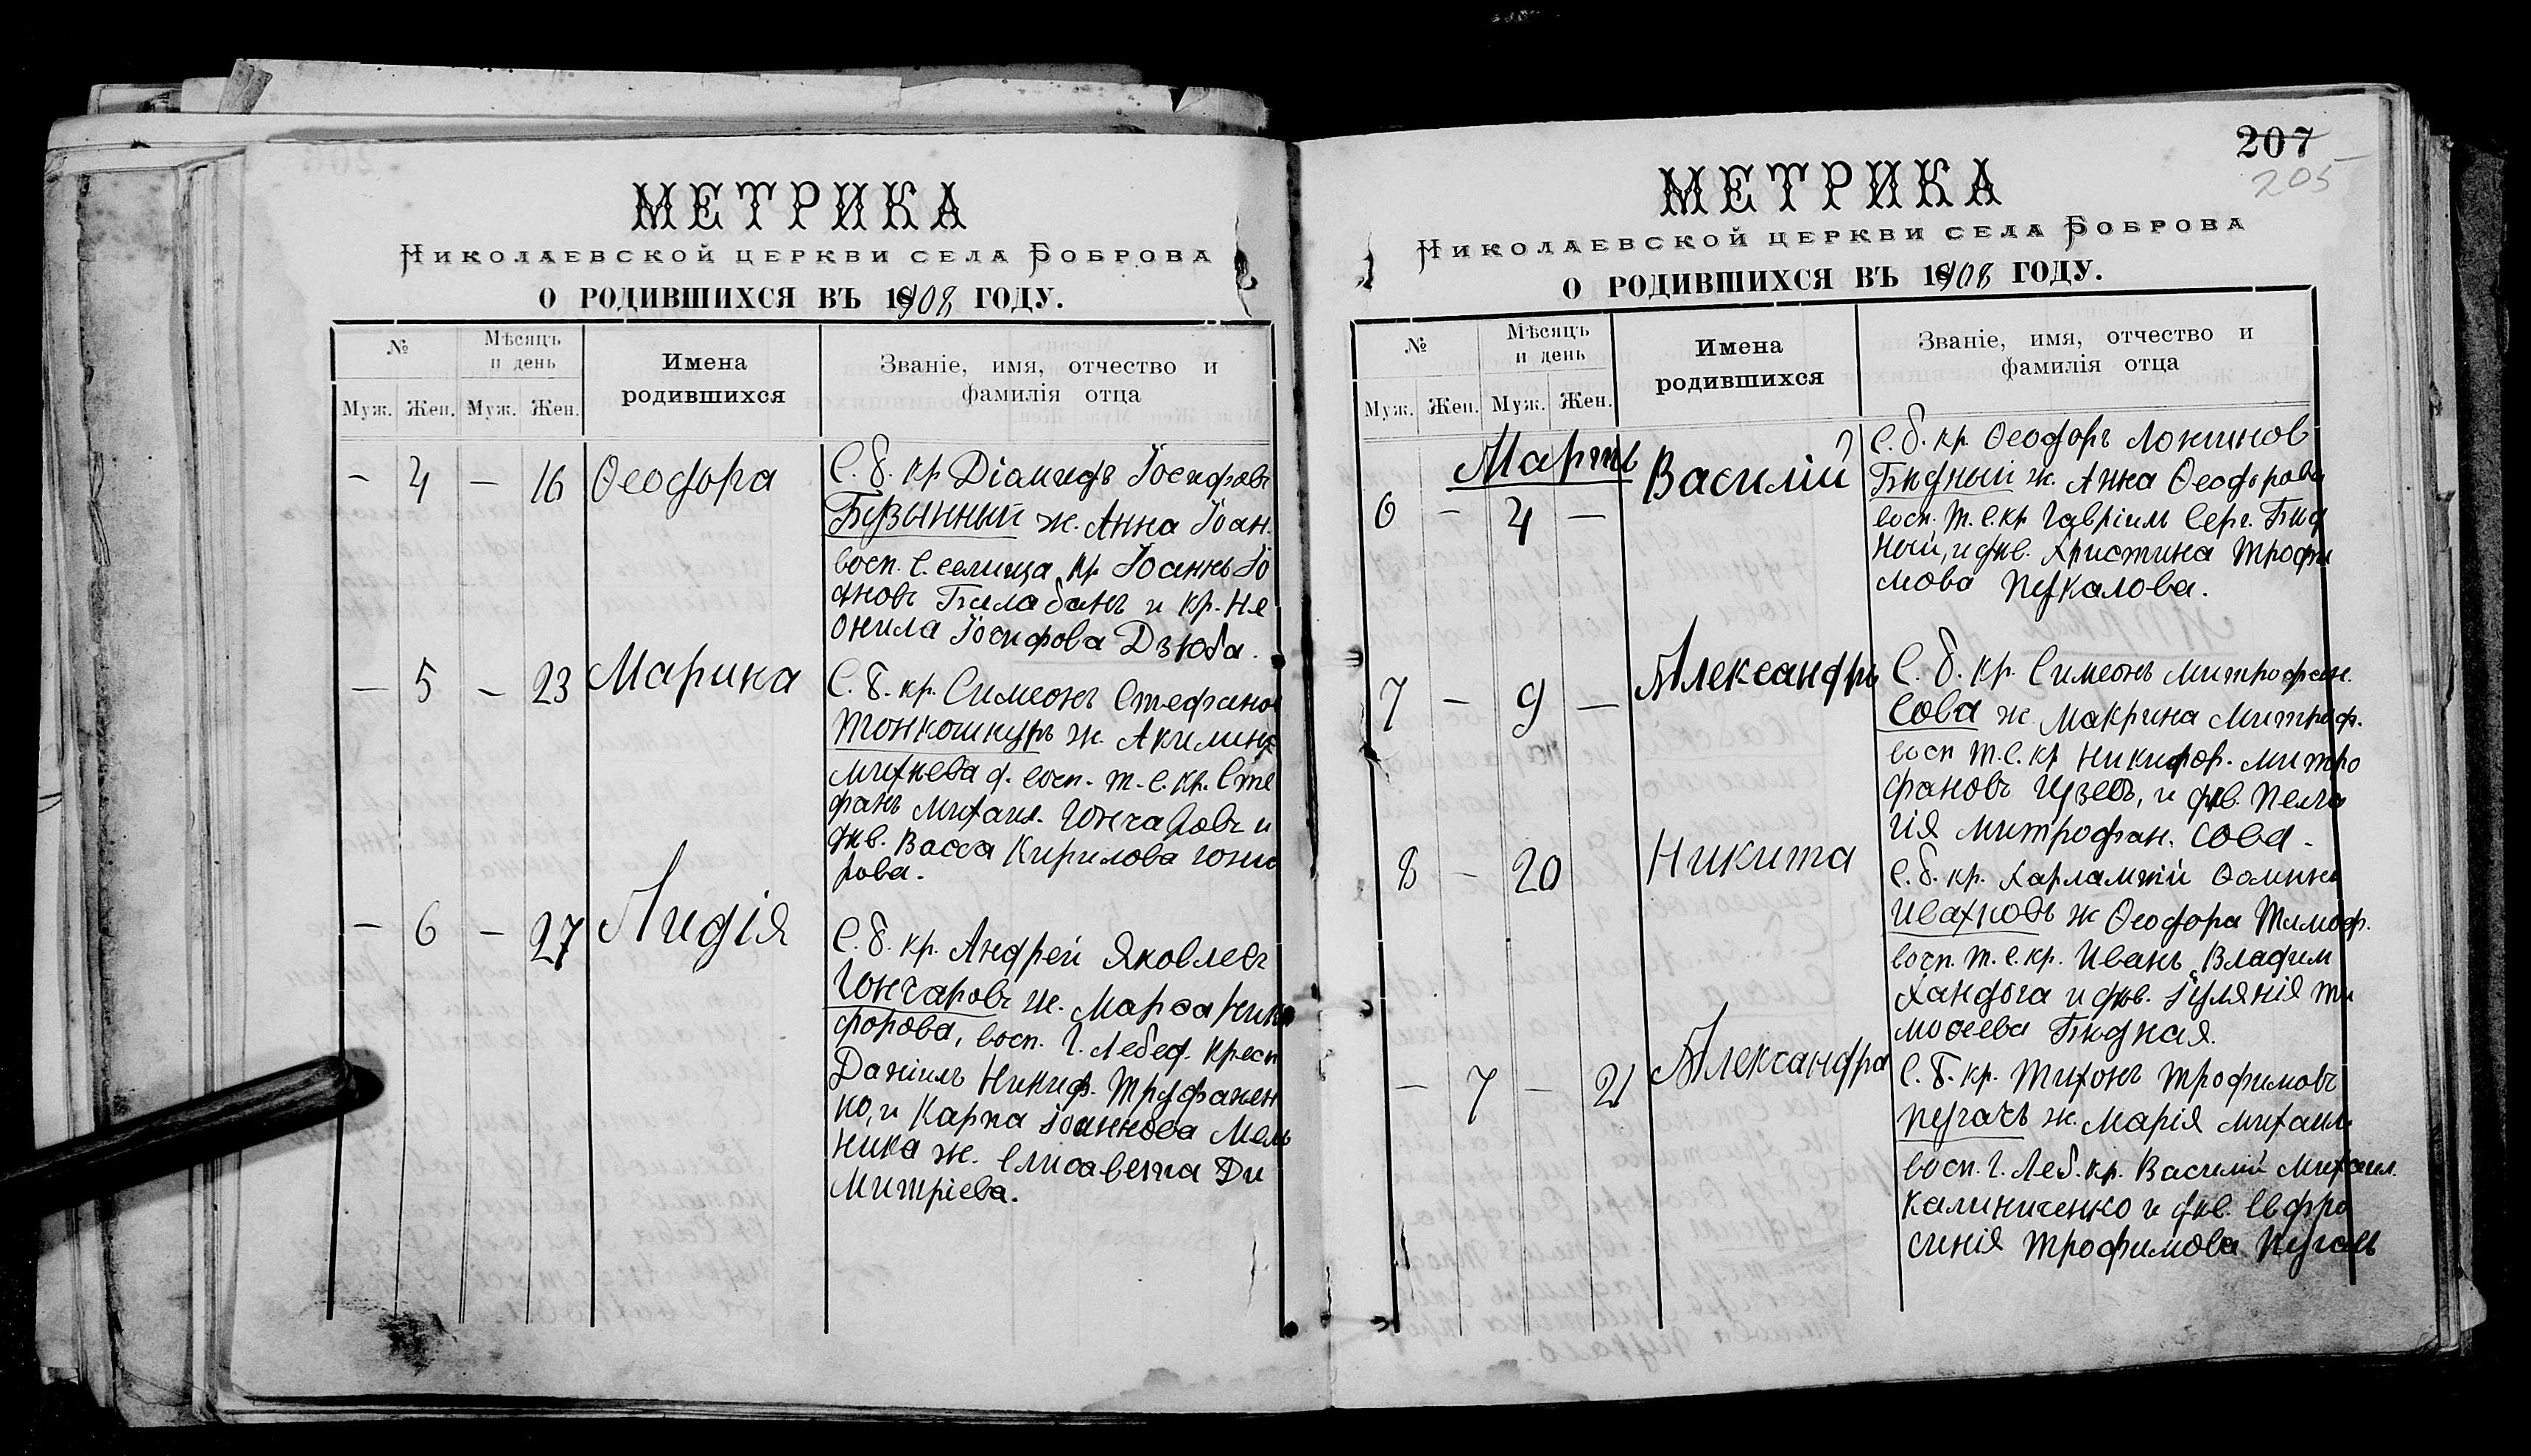 МЕТРИКА
Николаевской церкви села Боброва
О РОДИВШИХСЯ ВЪ 1908 ГОДУ.
№
Мѣсяцъ и день
Имена родившихся
Званіе, имя, отчество и фамилія отца
Муж. Жен. Муж. Жен.
– 4 – 16 Ѳеодора
С. б. кр Діомидъ Іосифовъ
Бузынный ж. Анна Іоан.
восп. с. селища кр Іоаннъ Іо
анновъ Билабанъ и кр. Не
онила Іосифова Дзюба.
– 5 – 23 Марина
С. б. кр. Симеонъ Стефанов
Тонкошкуръ ж. Акилина
Михнева д. восп. т. с. кр. Сте
фанъ Михаил. Гончаровъ и
дѣв. Васса Кирилова Гонча
рова.
– 6 – 27 Лидія
С. б. кр. Андрей Яковлевъ
Гончаровъ ж. Марѳа Ники
форова, восп. г. Лебед. крест
Даніилъ Никиф. Труфанен
ко, и Карпа Іоаннова Мель
ника ж. Елисавета Ди
митріева.
207
205
МЕТРИКА
Николаевской церкви села Боброва
О РОДИВШИХСЯ ВЪ 1908 ГОДУ.
№
Мѣсяцъ и день
Имена родившихся
Званіе, имя, отчество и фамилія отца
Муж. Жен. Муж. Жен.
Мартъ
6 – 4 – Василій
С. б. кр Ѳеодоръ Локинов
Бидный ж. Анна Ѳеодорова
восп. т. с. кр Гавріилъ Серг. Бид
ный, и дѣв. Христина Трофи
мова
7 – 9 – Александръ
С. б. кр. Симеонъ Митрофан.
Сова ж. Макрина Митроф.
восп т. с. кр Никифор. Митро
фановъ Гузевъ, и дѣв. Пела
гія Митрофан. Сова.
8 – 20 Никита
С. б. кр. Харлампій Ѳоминъ
Ивахновъ ж Ѳеодора Тимоф.
восп. т. с. кр. Иванъ Владим
Хандога и дѣв. Іуліянія Ти
моѳеева Бидная.
– 7 – 21 Александра
С. б. кр. Тихонъ Трофимовъ
Пугачъ ж. Марія Михаил.
восп. г. Леб. кр. Василій Михаил.
Калиниченко и дѣв. Евфро
синія Трофимова Пугачъ